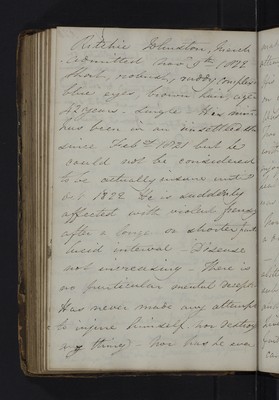 Ritchie Johnston, 
admitted Nov 9th 1822
short, robust, ruddy complexn
blue eyes, brown hair, aged
42 years. Single. His mind
has been in an unsettled state
since Feby 1821 but he
could not be considered
to be actually insane until
Oct 1822 He is suddenly
affected with violent frenzy
after a longer or shorter
lucid interval. Disease
not increasing. There is
no particular mental
Has never made any attempt
to injure himself, nor destroy
any thing. Nor has he ever